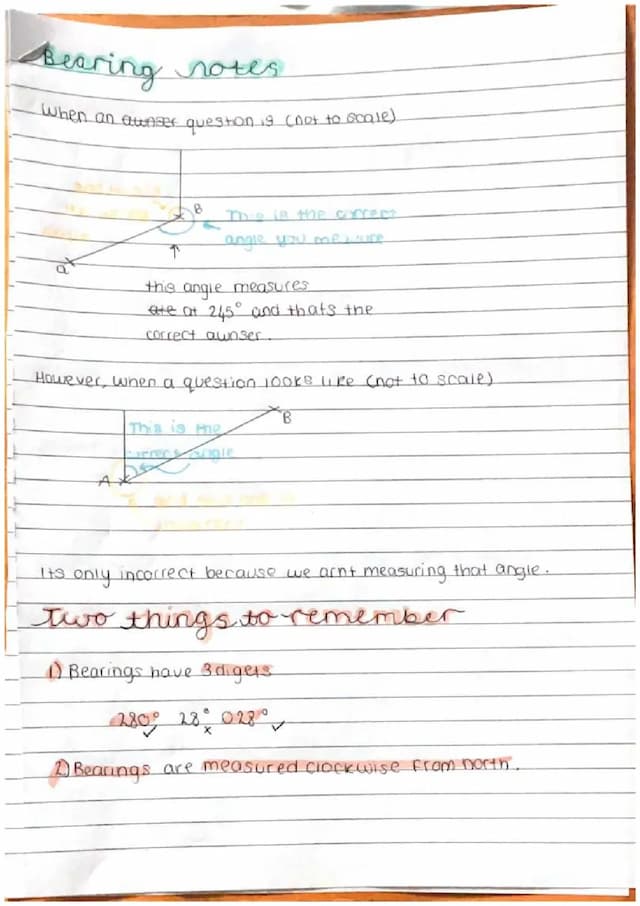 Bearing notes
When an awnser question is (not to scale)
B
This is the correct
angle you measure
a
this angle measures
are at 245° and thats the
correct awnser.
However, when a question looks like (not to scale)
B
This is the
correct angle
A
Its only incorrect because we arnt measuring that angle.
Two things to remember
1) Bearings have 3 digets
280° 28° 028°
2) Bearings are measured clockwise from north.